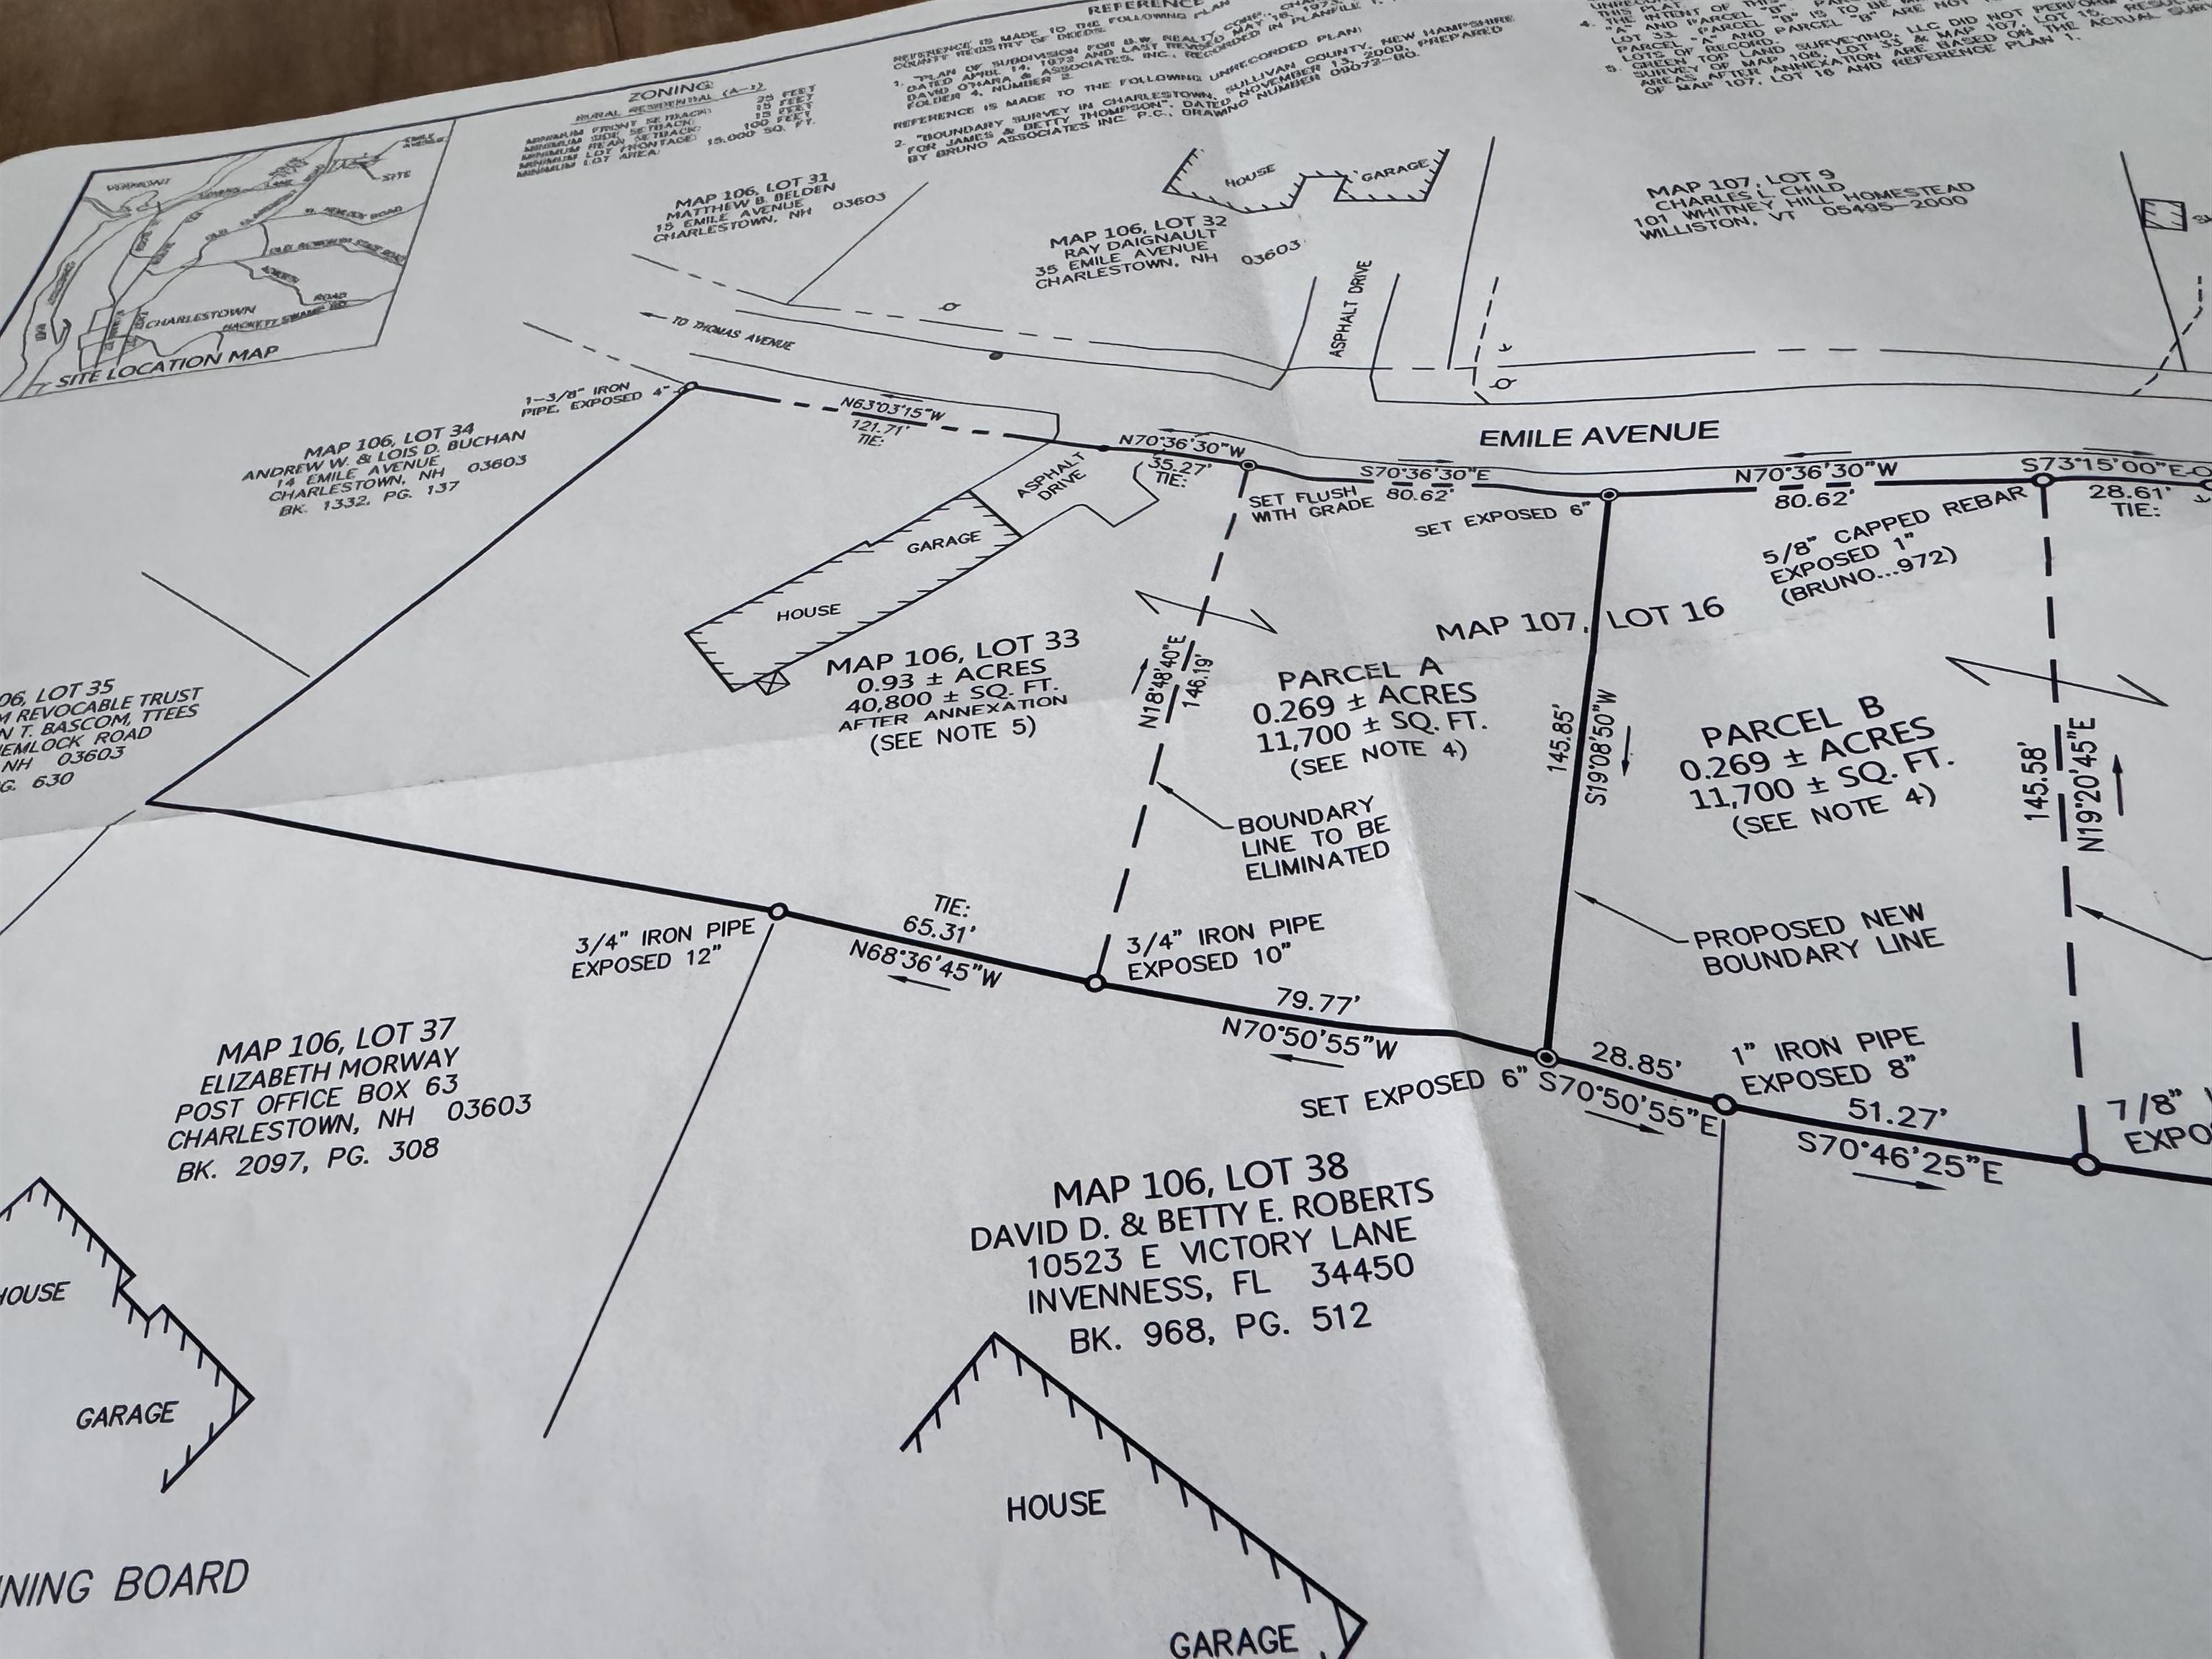 REFERENCE
REFERENCE IS MADE TO THE FOLLOWING PLAN
COUNTY REGISTRY OF DEEDS:
1. "PLAN OF SUBDIVISION FOR B.W. REALTY CORP.,
DATED APRIL 14, 1972 AND LAST REVISED MAY 18, 1973,
DAVID O'HARA & ASSOCIATES, INC., RECORDED IN PLANFILE 1,
FOLDER 4, NUMBER 2.
REFERENCE IS MADE TO THE FOLLOWING UNRECORDED PLAN:
2. "BOUNDARY SURVEY IN CHARLESTOWN, SULLIVAN COUNTY, NEW HAMPSHIRE
FOR JAMES & BETTY THOMPSON", DATED NOVEMBER 13, 2009, PREPARED
BY BRUNO ASSOCIATES INC. P.C., DRAWING NUMBER 09073-BD.
4. THE INTENT OF THIS
"A" AND PARCEL "B".
LOT 33. PARCEL "B" IS TO BE
PARCEL "A" AND PARCEL "B" ARE NOT
LOTS OF RECORD.
5. GREEN TOP LAND SURVEYING, LLC DID NOT PERFORM
SURVEY OF MAP 106, LOT 33 & MAP 107, LOT 15.
AREAS AFTER ANNEXATION ARE BASED ON THE ACTUAL
OF MAP 107, LOT 16 AND REFERENCE PLAN 1.
ZONING:
RURAL RESIDENTIAL (A-1)
MINIMUM FRONT SETBACK: 25 FEET
MINIMUM SIDE SETBACK: 15 FEET
MINIMUM REAR SETBACK: 15 FEET
MINIMUM LOT FRONTAGE: 100 FEET
MINIMUM LOT AREA: 15,000 SQ. FT.
VERMONT
SITE
CHARLESTOWN
ROAD
SITE LOCATION MAP
MAP 106, LOT 31
MATTHEW B. BELDEN
15 EMILE AVENUE
CHARLESTOWN, NH 03603
HOUSE
GARAGE
MAP 106, LOT 32
RAY DAIGNAULT
35 EMILE AVENUE
CHARLESTOWN, NH 03603
MAP 107, LOT 9
CHARLES L. CHILD
101 WHITNEY HILL HOMESTEAD
WILLISTON, VT 05495-2000
ASPHALT DRIVE
TO THOMAS AVENUE
EMILE AVENUE
1-3/8" IRON
PIPE, EXPOSED 4"
N63°03'15"W
121.71'
TIE:
N70°36'30"W
35.27'
TIE:
S70°36'30"E
80.62'
N70°36'30"W
80.62'
S73°15'00"E
28.61'
TIE:
MAP 106, LOT 34
ANDREW W. & LOIS D. BUCHAN
14 EMILE AVENUE
CHARLESTOWN, NH 03603
BK. 1332, PG. 137
ASPHALT
DRIVE
SET FLUSH
WITH GRADE
SET EXPOSED 6"
5/8" CAPPED REBAR
EXPOSED 1"
(BRUNO...972)
GARAGE
HOUSE
MAP 107, LOT 16
06, LOT 35
M REVOCABLE TRUST
N T. BASCOM, TTEES
HEMLOCK ROAD
NH 03603
G. 630
MAP 106, LOT 33
0.93 ± ACRES
40,800 ± SQ. FT.
AFTER ANNEXATION
(SEE NOTE 5)
N18°48'40"E
146.19'
PARCEL A
0.269 ± ACRES
11,700 ± SQ. FT.
(SEE NOTE 4)
145.85'
S19°08'50"W
PARCEL B
0.269 ± ACRES
11,700 ± SQ. FT.
(SEE NOTE 4)
145.58'
N19°20'45"E
BOUNDARY
LINE TO BE
ELIMINATED
PROPOSED NEW
BOUNDARY LINE
3/4" IRON PIPE
EXPOSED 12"
TIE:
65.31'
N68°36'45"W
3/4" IRON PIPE
EXPOSED 10"
79.77'
N70°50'55"W
SET EXPOSED 6"
28.85'
S70°50'55"E
1" IRON PIPE
EXPOSED 8"
51.27'
S70°46'25"E
7/8"
EXPO
MAP 106, LOT 37
ELIZABETH MORWAY
POST OFFICE BOX 63
CHARLESTOWN, NH 03603
BK. 2097, PG. 308
MAP 106, LOT 38
DAVID D. & BETTY E. ROBERTS
10523 E VICTORY LANE
INVENNESS, FL 34450
BK. 968, PG. 512
HOUSE
GARAGE
HOUSE
GARAGE
NNING BOARD